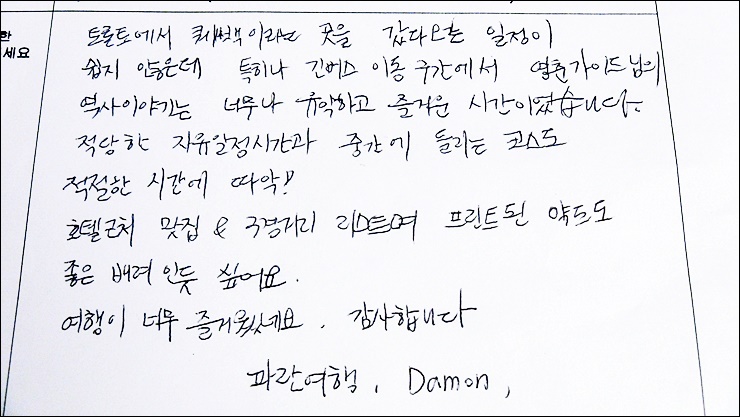 한
세요
토론토에서 퀘벡이라는 곳을 갔다오는 일정이
쉽지 않은데 특히나 긴버스 이동 구간에서 열혼가이드님의
역사이야기는 너무나 유익하고 즐거운 시간이였습니다.
적당한 자유일정시간과 중간에 들리는 코스도
적절한 시간에 따악!!
호텔근처 맛집 & 구경거리 리스트며 프린트된 약도도
좋은 배려인듯 싶어요.
여행이 너무 즐거웠네요. 감사합니다
파란여행, Damon,